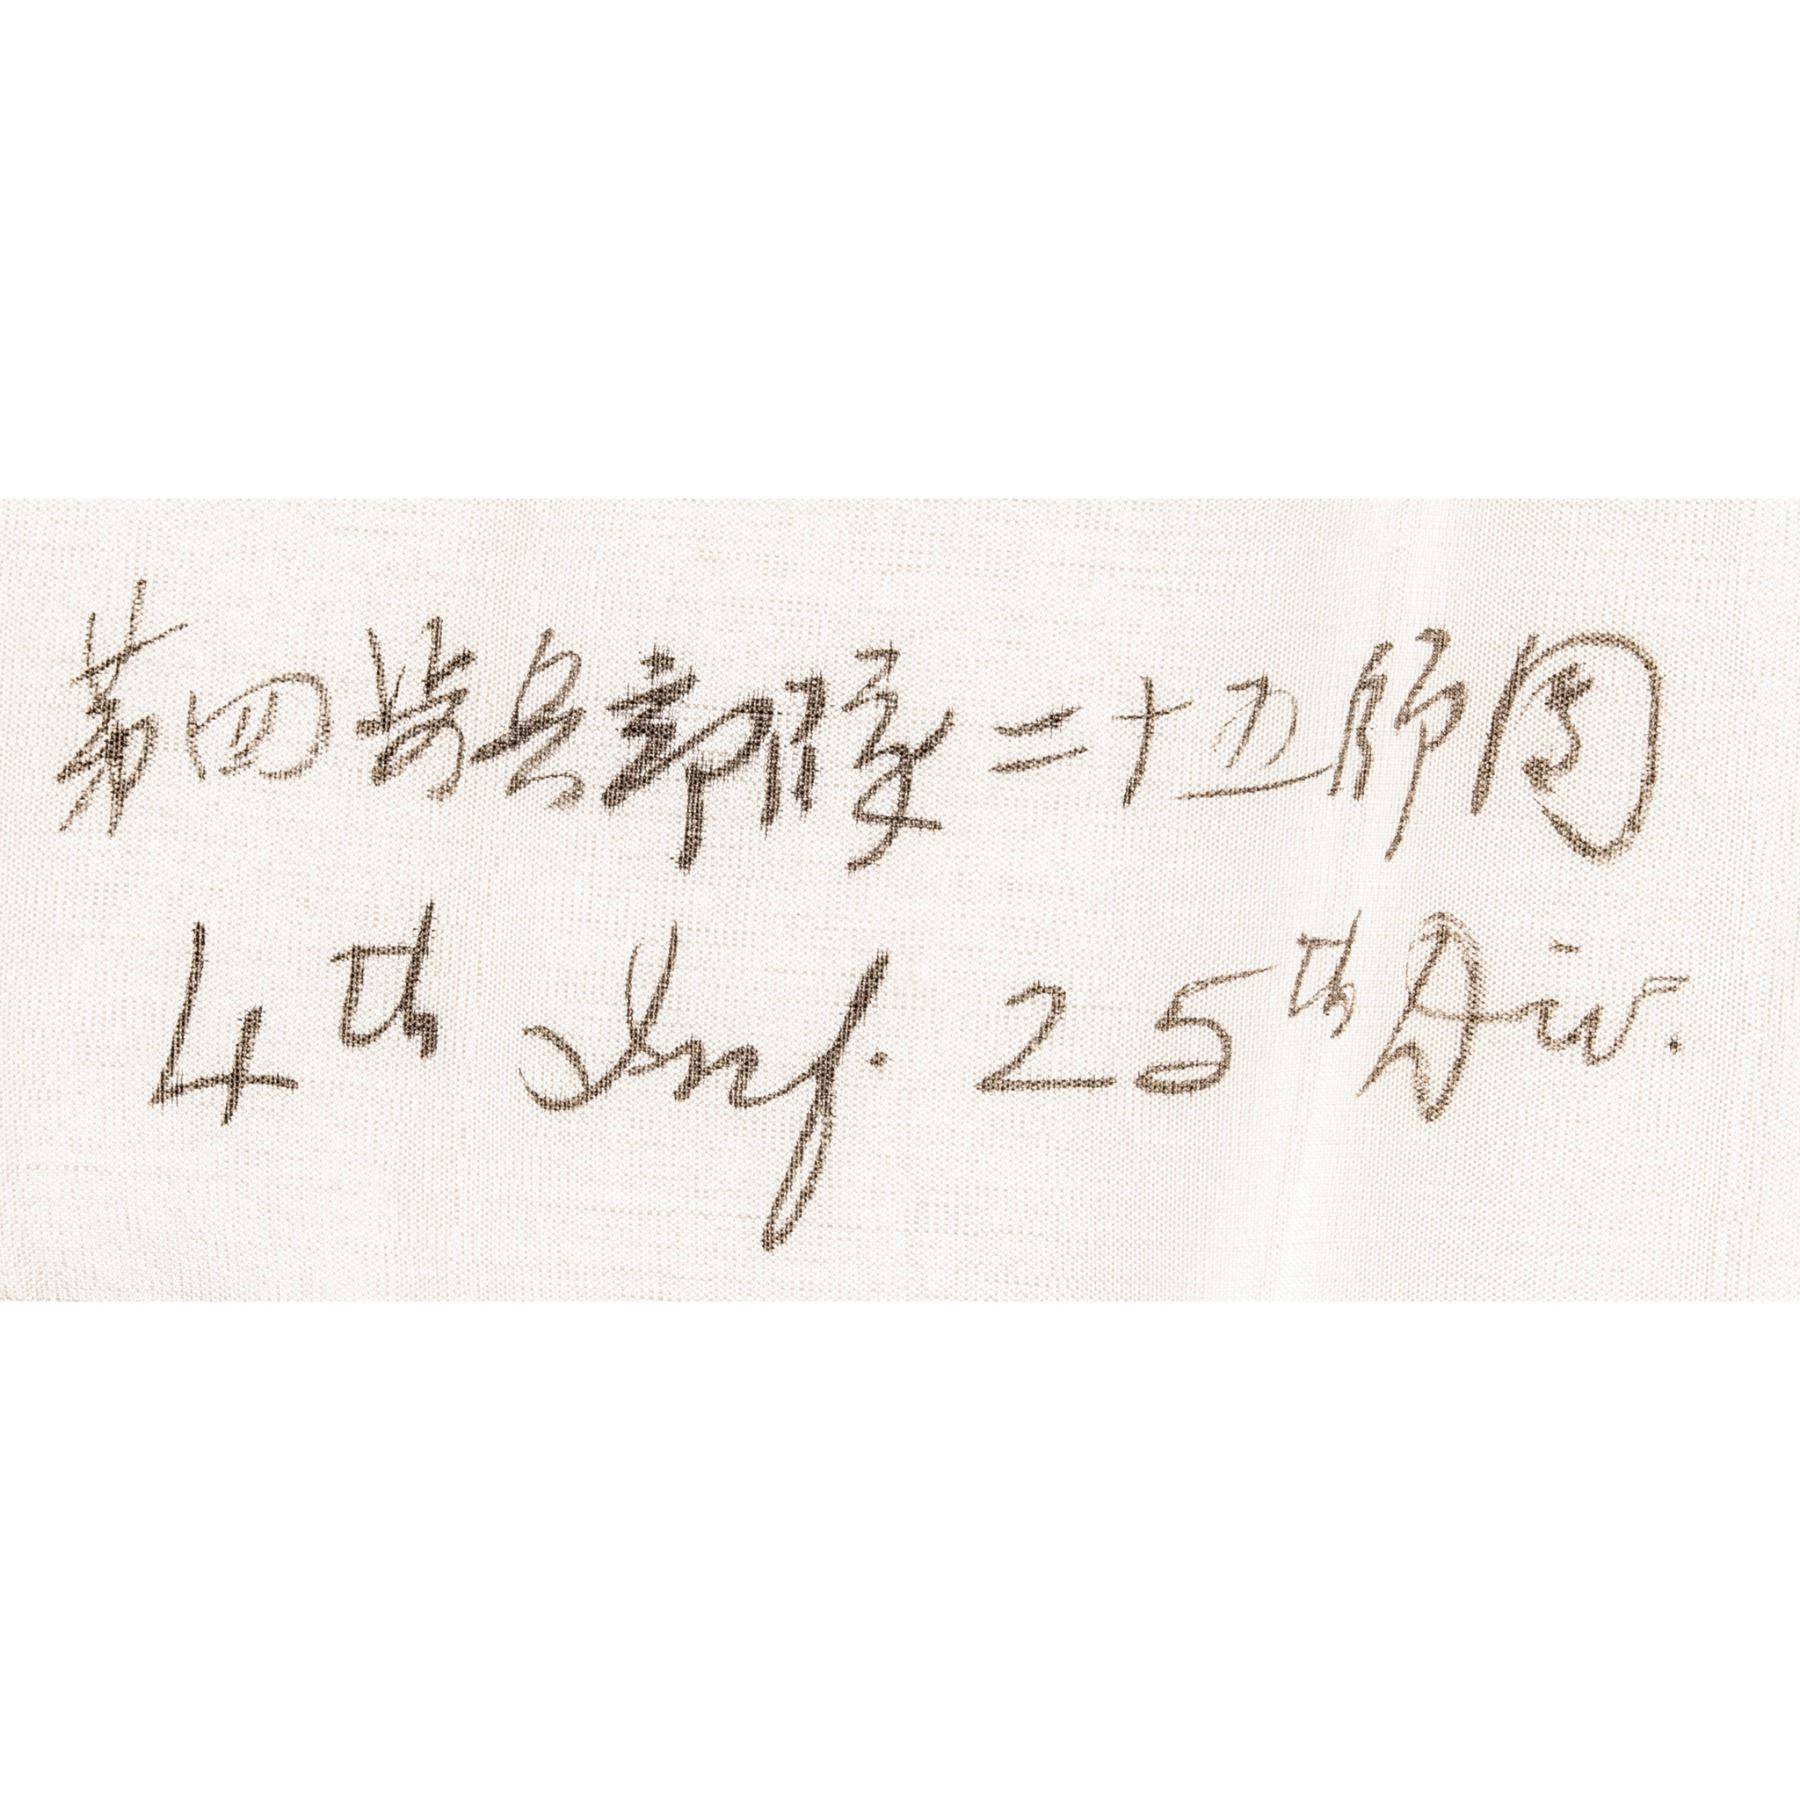 第四歩兵部隊二十五師團
4th Inf. 25th Div.